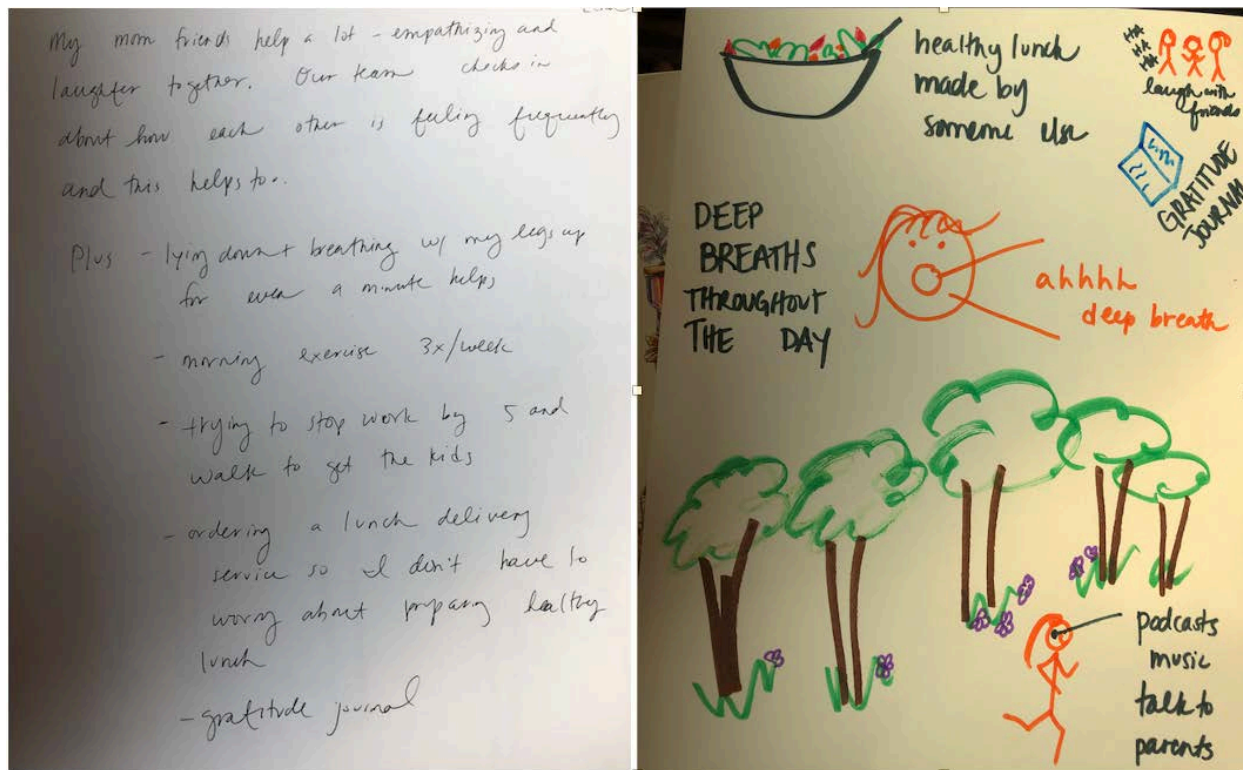 My mom friends help a lot - empathizing and
laughter together. Our team checks in
about how each other is feeling frequently
and this helps too.
Plus - lying down + breathing w/ my legs up
for even a minute helps
- morning exercise 3x/week
- trying to stop work by 5 and
walk to get the kids
- ordering a lunch delivery
service so I don't have to
worry about preparing healthy
lunch
- gratitude journal
healthy lunch
made by
someone else
HA
HA
HA
HA
laugh with
friends
GRATITUDE
JOURNAL
DEEP
BREATHS
THROUGHOUT
THE DAY
ahhhh
deep breath
podcasts
music
talk to
parents